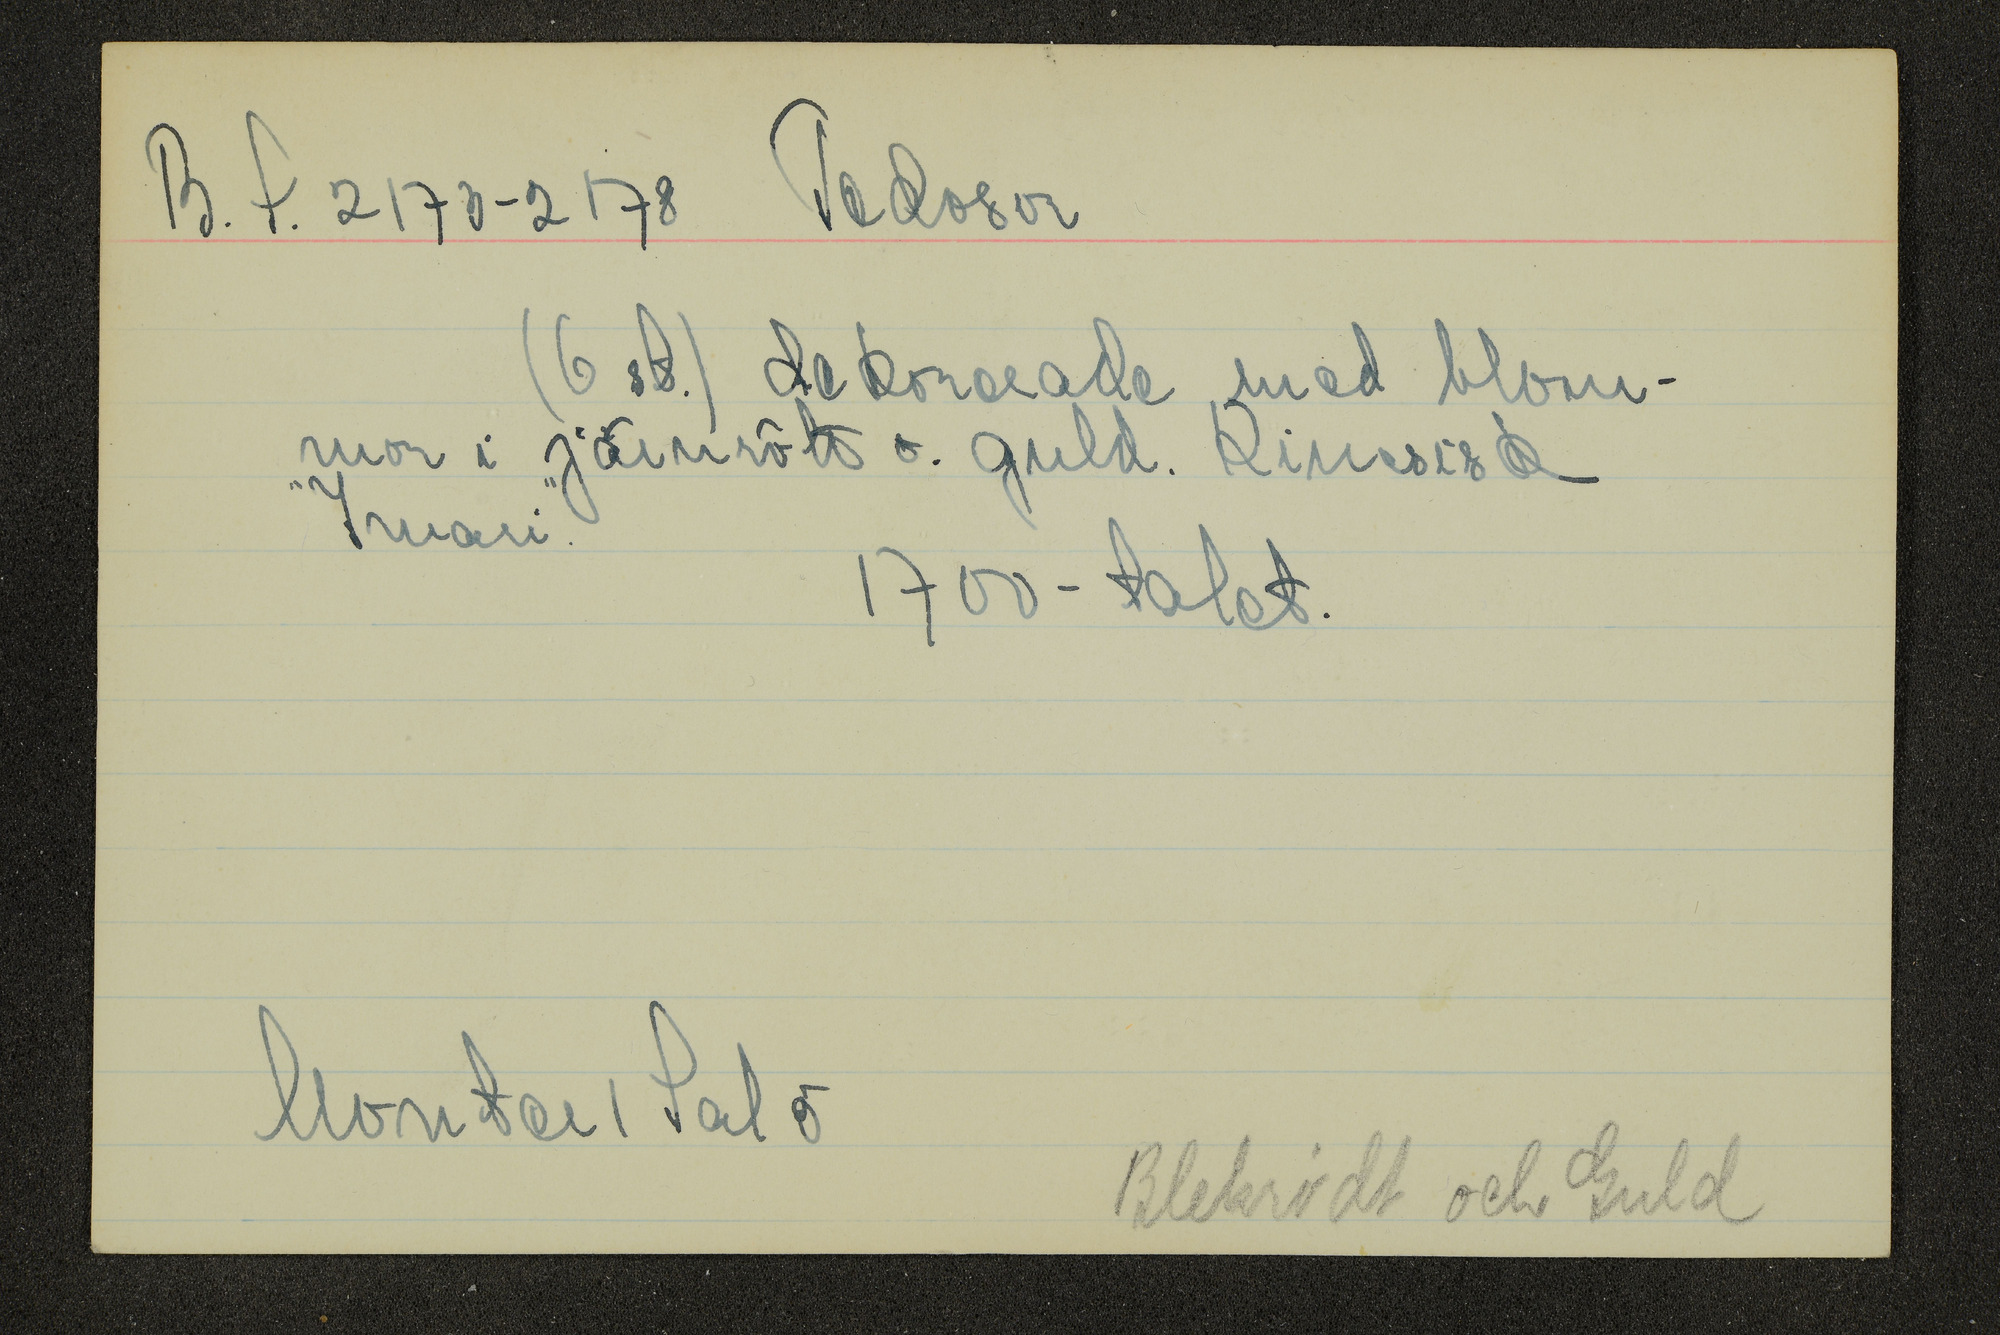 B. f. 2173-2178 Tedosor
(6 st.) dekorerade med blom-
mor i järnrött o. guld. Kinesisk
"Imari".
1700-talet.
Monter 1 Sal ō
Blekrödt och Guld